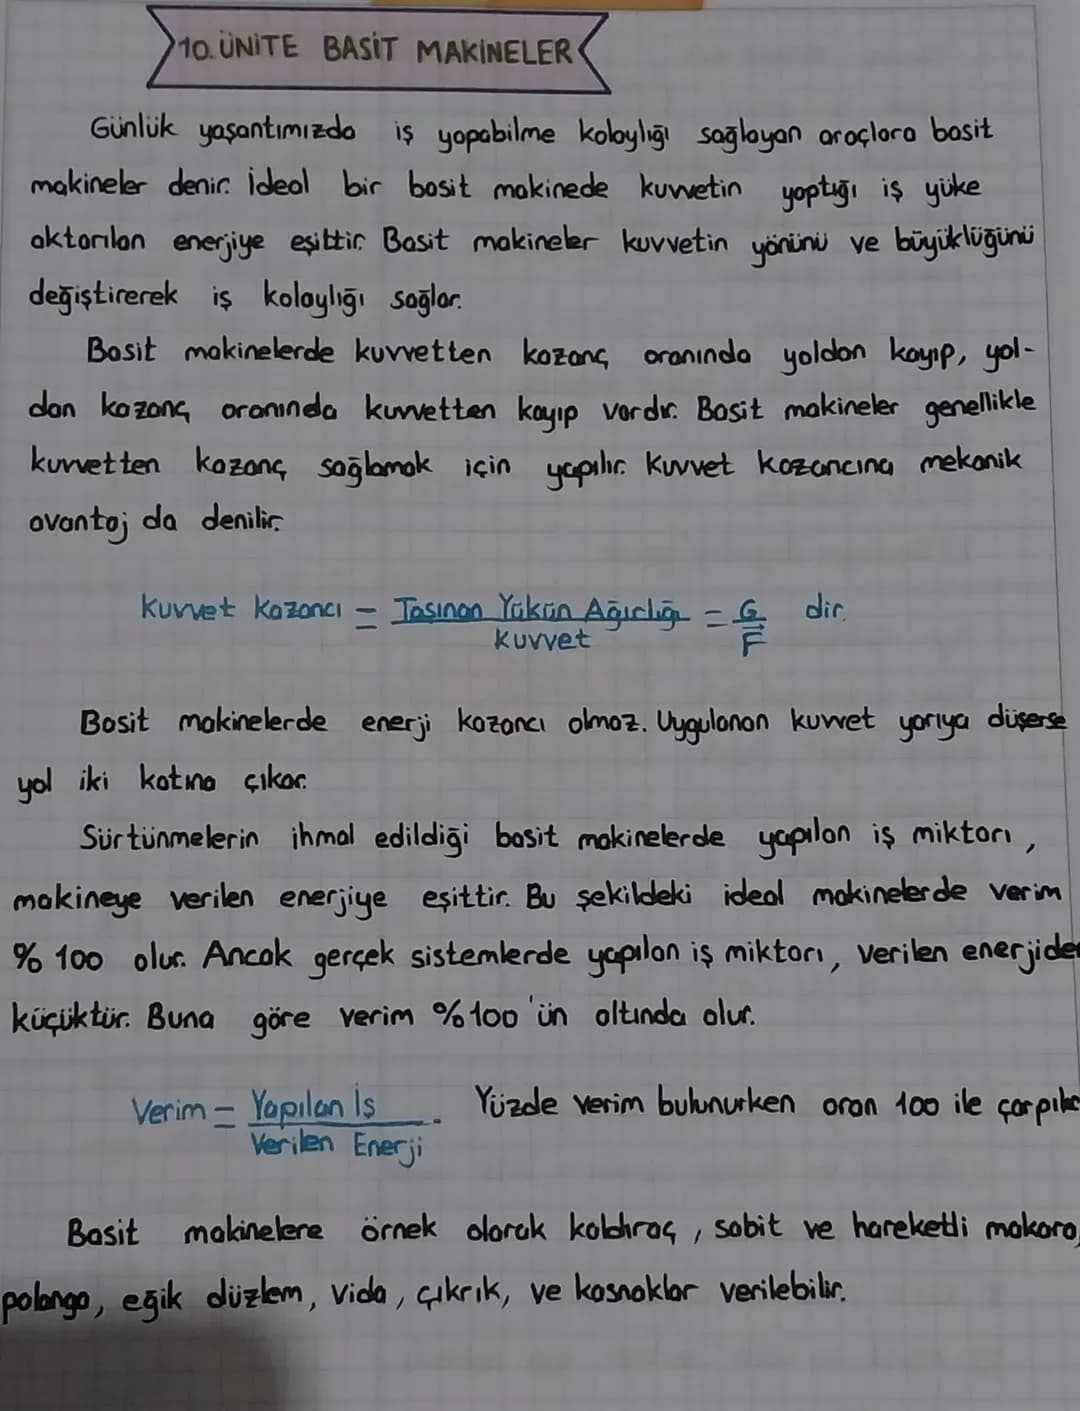 10. ÜNİTE BASİT MAKİNELER
Günlük yaşantımızda iş yapabilme kolaylığı sağlayan araçlara basit
makineler denir. İdeal bir basit makinede kuvvetin yaptığı iş yüke
aktarılan enerjiye eşittir. Basit makineler kuvvetin yönünü ve büyüklüğünü
değiştirerek iş kolaylığı sağlar.
Basit makinelerde kuvvetten kazanç oranında yoldan kayıp, yol-
dan kazanç oranında kuvvetten kayıp vardır. Basit makineler genellikle
kuvvetten kazanç sağlamak için yapılır. Kuvvet kazancına mekanik
avantaj da denilir.
Kuvvet Kazancı = Taşınan Yükün Ağırlığı = G dir.
Kuvvet F
Basit makinelerde enerji kazancı olmaz. Uygulanan kuvvet yarıya düşerse
yol iki katına çıkar.
Sürtünmelerin ihmal edildiği basit makinelerde yapılan iş miktarı,
makineye verilen enerjiye eşittir. Bu şekildeki ideal makinelerde verim
% 100 olur. Ancak gerçek sistemlerde yapılan iş miktarı, verilen enerjiden
küçüktür. Buna göre verim %100'ün altında olur.
Verim = Yapılan İş . Yüzde verim bulunurken oran 100 ile çarpılır
Verilen Enerji
Basit makinelere örnek olarak kaldıraç, sabit ve hareketli makara,
palanga, eğik düzlem, vida, çıkrık, ve kasnaklar verilebilir.